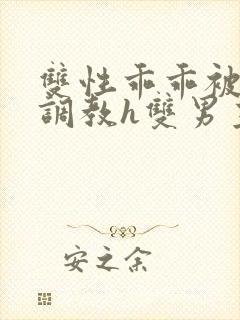 雙性乖乖被
調教h雙男主
安之余